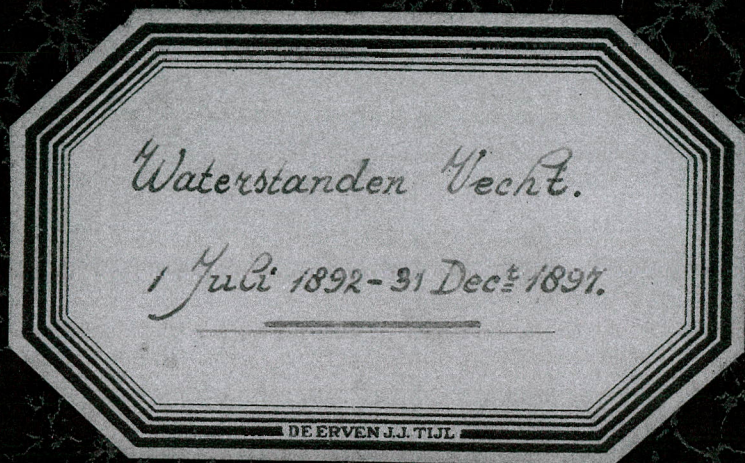 Waterstanden Vecht.
1 Juli 1892 - 31 Dec.t 1897.
DE ERVEN J.J. TIJL